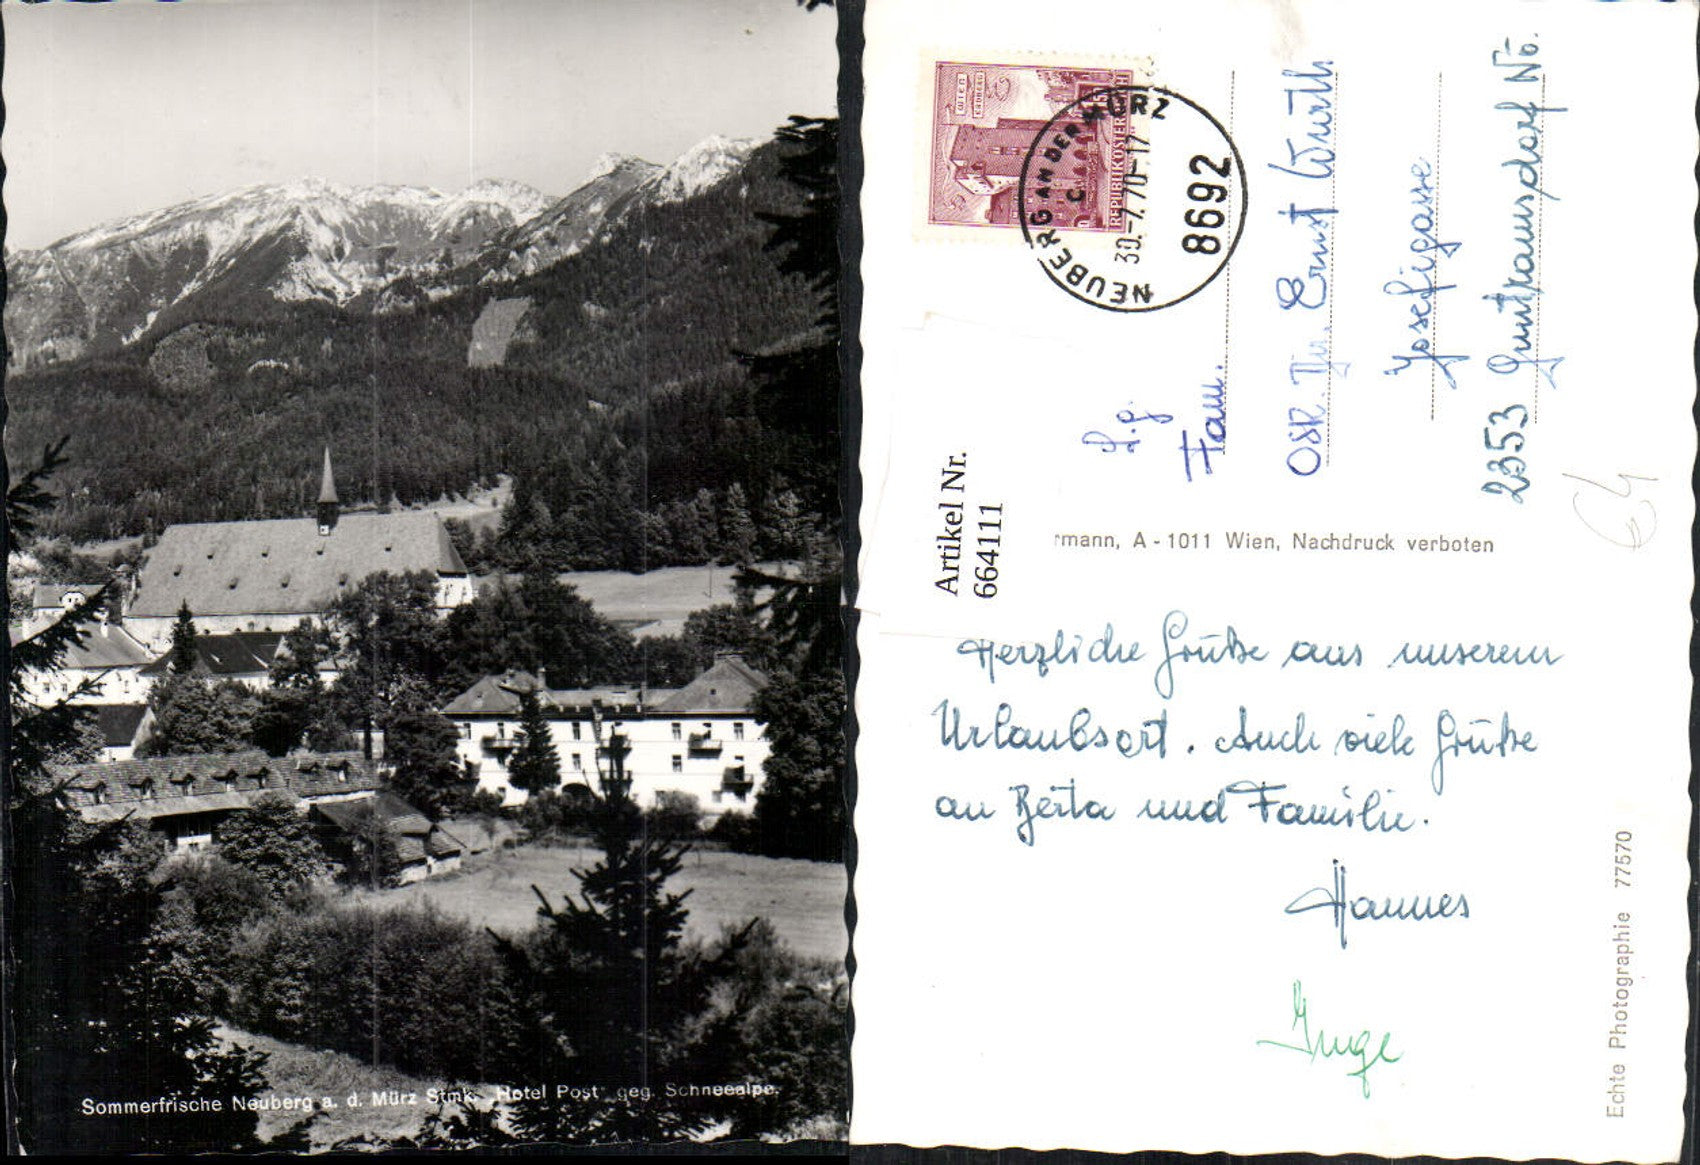 Sommerfrische Neuberg a. d. Mürz Stmk. „Hotel Post" geg. Schneealpe.
WIEN
ERDBERG
REPUBLIK ÖSTERREICH
NEUBERG AN DER MÜRZ
C
30.-7.70-17
8692
L.g.
Fam.
OSR. Ernst Wurth
Josefigasse
2353 Guntramsdorf No.
64
Artikel Nr.
664111
rmann, A - 1011 Wien, Nachdruck verboten
Herzliche Grüße aus unserem
Urlaubsort. Auch viele Grüße
an Berta und Familie.
Hannes
Inge
Echte Photographie 77570